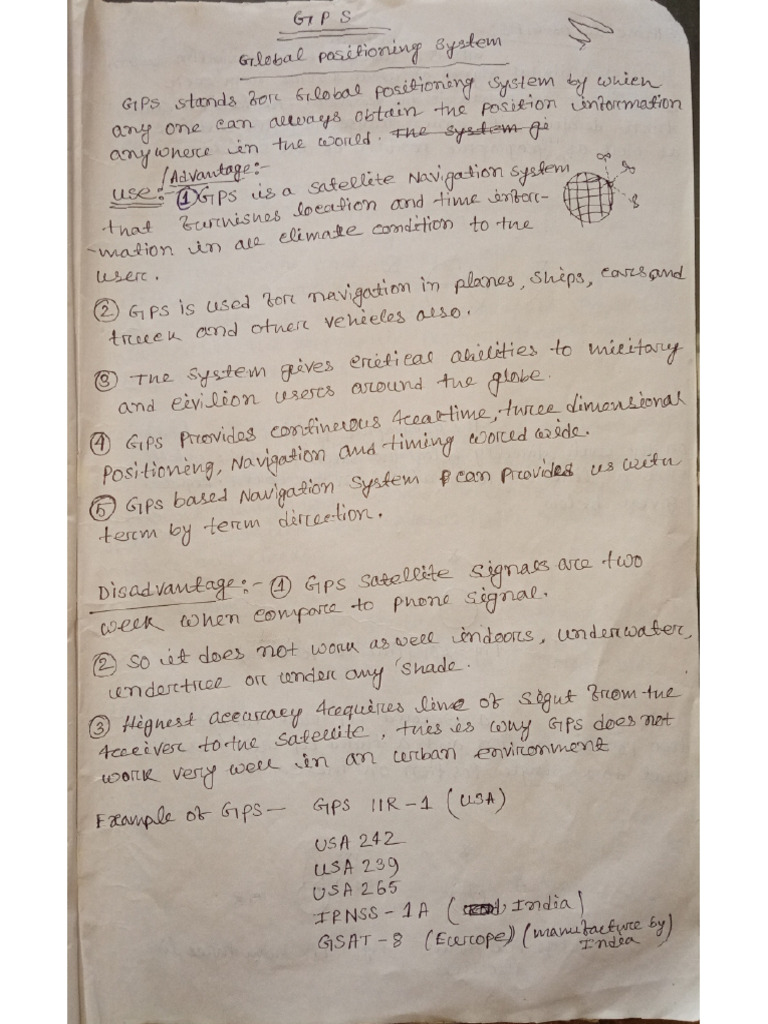 GPS
Global Positioning System
GPS stands for Global Positioning System by which
any one can always obtain the position information
anywhere in the world. The system gi
/Advantage:-
Use:- ① GPS is a satellite Navigation system
that furnishes location and time infor-
-mation in all climate condition to the
user.
② GPS is used for navigation in planes, ships, cars and
truck and other vehicles also.
③ The system gives critical abilities to military
and civilion users around the globe.
④ GPS Provides continuous realtime, three dimensional
Positioning, Navigation and timing world wide.
⑤ GPS based Navigation System can provides us with
term by term direction.
Disadvantage:- ① GPS satellite signals are two
week when compare to phone signal.
② So it does not work as well indoors, underwater,
undertree or under any shade.
③ Highest accuracy requires line of sigut from the
receiver to the satellite, this is why GPS does not
work very well in an urban environment
Example of GPS— GPS IIR-1 (USA)
USA 242
USA 239
USA 265
IRNSS-1A (India)
GSAT-8 (Europe) (manufacture by
India)